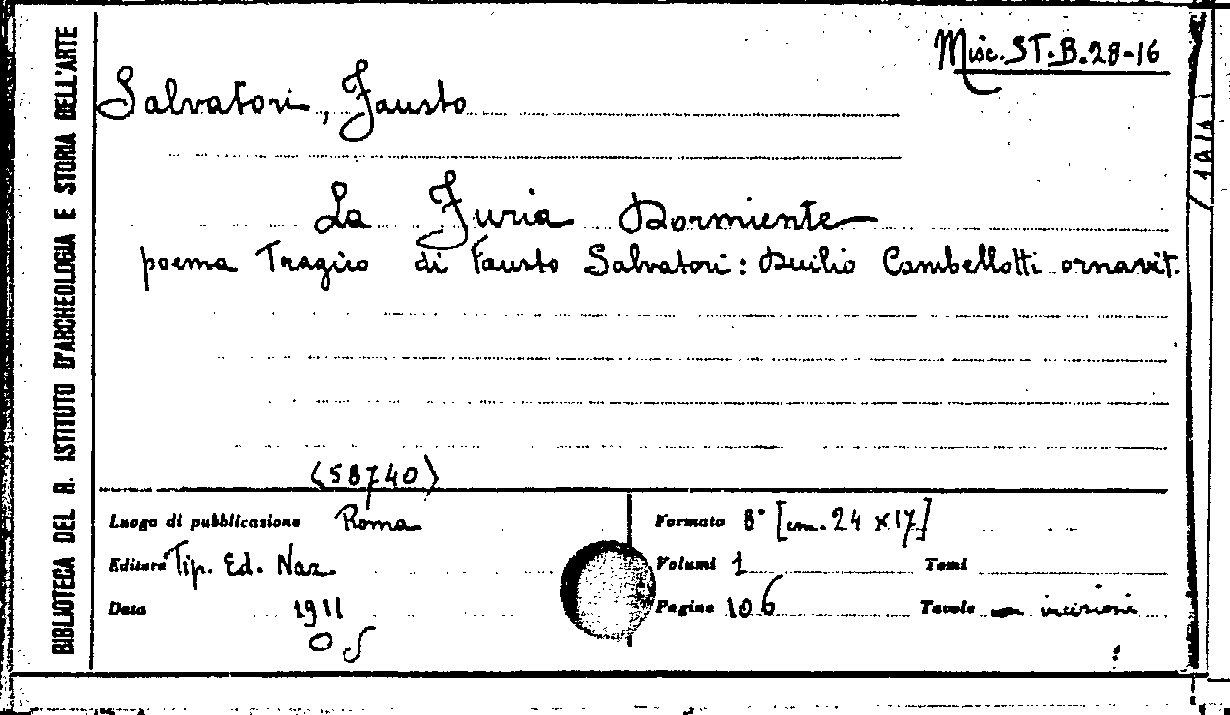 Misc. ST. B. 28-16
Salvatori, Fausto
La Furia Dormiente
poema Tragico di Fausto Salvatori: Duilio Cambellotti ornavit.
(58740)
Luogo di pubblicazione Roma
Editore Tip. Ed. Naz.
Data 1911
Formato 8° [cm. 24 x 17]
Volumi 1 Tomi
Pagine 106 Tavole incisioni
BIBLIOTECA DEL R. ISTITUTO D'ARCHEOLOGIA E STORIA DELL'ARTE